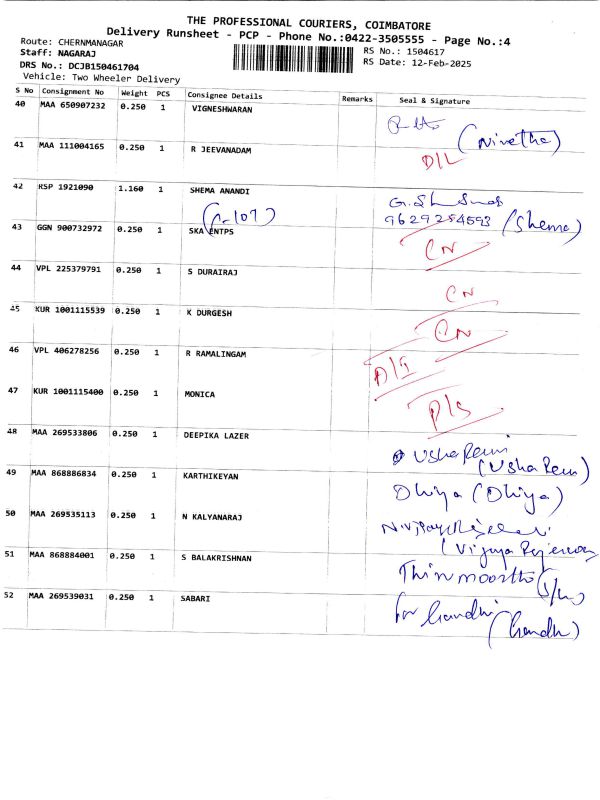 THE PROFESSIONAL COURIERS, COIMBATORE
Delivery Runsheet - PCP - Phone No.:0422-3505555 - Page No.:4
Route: CHERNMANAGAR
Staff: NAGARAJ
RS No.: 1504617
DRS No.: DCJB150461704
RS Date: 12-Feb-2025
Vehicle: Two Wheeler Delivery
S No Consignment No Weight PCS Consignee Details Remarks Seal & Signature
40 MAA 650907232 0.250 1 VIGNESHWARAN
(Nivetha)
41 MAA 111004165 0.250 1 R JEEVANADAM
D/L
42 RSP 1921090 1.160 1 SHEMA ANANDI
9629254593 (Shema)
43 GGN 900732972 0.250 1 SKA ENTPS
CN
44 VPL 225379791 0.250 1 S DURAIRAJ
CN
45 KUR 1001115539 0.250 1 K DURGESH
CN
46 VPL 406278256 0.250 1 R RAMALINGAM
47 KUR 1001115400 0.250 1 MONICA
48 MAA 269533806 0.250 1 DEEPIKA LAZER
49 MAA 868886834 0.250 1 KARTHIKEYAN
Dhiya (Dhiya)
50 MAA 269535113 0.250 1 N KALYANARAJ
51 MAA 868884001 0.250 1 S BALAKRISHNAN
52 MAA 269539031 0.250 1 SABARI
for